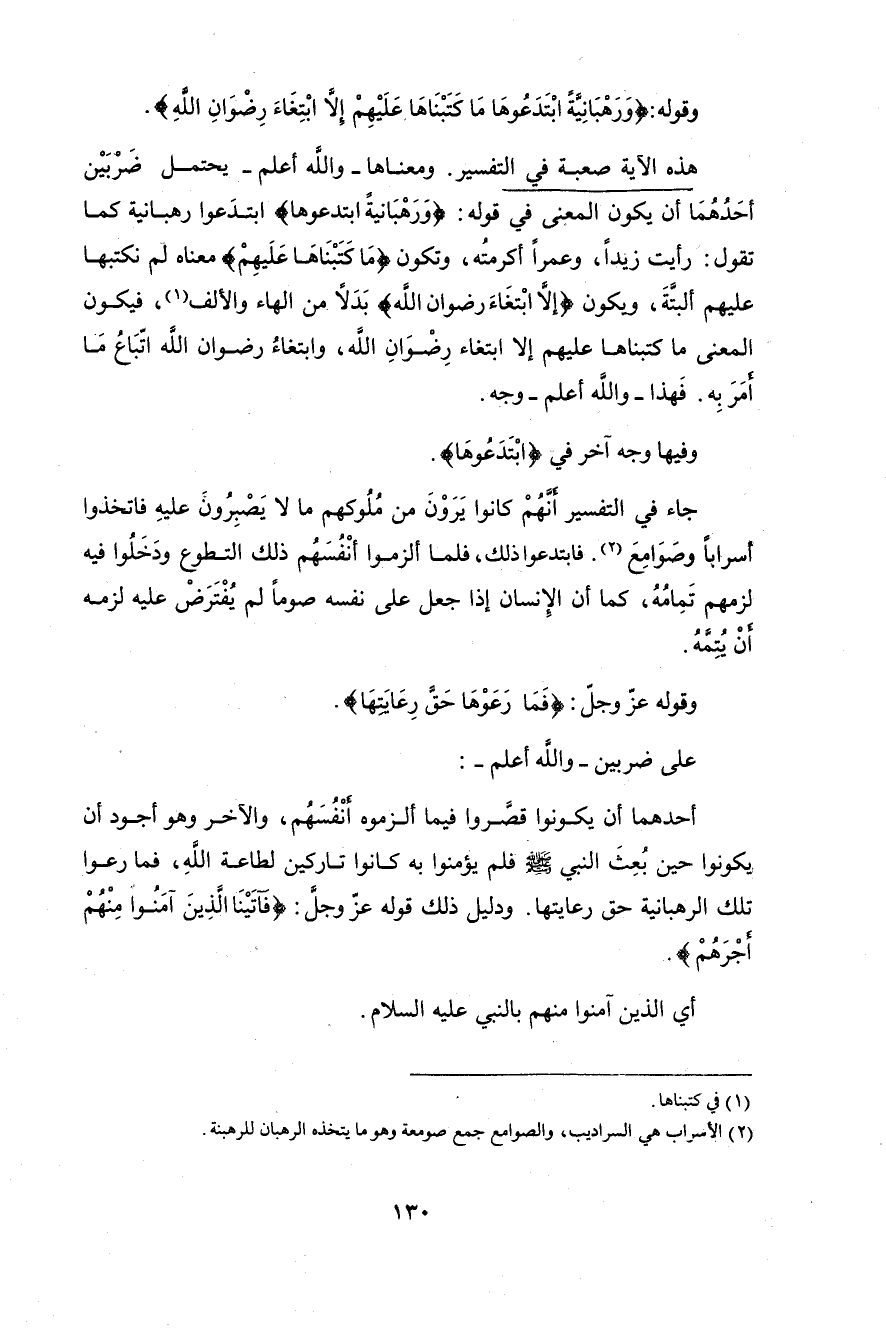 وقوله: ﴿وَرَهْبَانِيَّةً ابْتَدَعُوهَا مَا كَتَبْنَاهَا عَلَيْهِمْ إِلَّا ابْتِغَاءَ رِضْوَانِ اللَّهِ﴾.
هذه الآية صعبة في التفسير. ومعناها ـ واللَّه أعلم ـ يحتمل ضَرْبَيْن
أحَدُهُمَا أن يكون المعنى في قوله: ﴿وَرَهْبَانيةً ابتدعوها﴾ ابتدَعوا رهبانية كما
تقول: رأيت زيداً، وعمراً أكرمتُه، وتكون ﴿مَا كَتَبْنَاهَا عَلَيهِمْ﴾ معناه لم نكتبها
عليهم ألبتَّةَ، ويكون ﴿إلَّا ابْتِغَاءَ رضوان اللَّه﴾ بَدَلًا من الهاء والألف(١)، فيكون
المعنى ما كتبناها عليهم إلا ابتغاء رِضْوَانِ اللَّه، وابتغاءُ رضوان اللَّه اتّبَاعُ مَا
أَمَرَ بِه. فَهذا ـ واللَّه أعلم ـ وجه.
وفيها وجه آخر في ﴿ابْتَدَعُوهَا﴾.
جاء في التفسير أَنَّهُمْ كانوا يَرَوْنَ من مُلُوكهم ما لا يَصْبِرُونَ عليهِ فاتخذوا
أسراباً وصَوَامِعَ (٢). فابتدعوا ذلك، فلما ألزموا أنْفُسَهُم ذلك التطوع ودَخَلُوا فيه
لزمهم تَمِامُهُ، كما أن الإنسان إذا جعل على نفسه صوماً لم يُفْتَرَضْ عليه لزمه
أَنْ يُتِمَّهُ.
وقوله عزّ وجلّ: ﴿فَمَا رَعَوْهَا حَقَّ رِعَايَتِهَا﴾.
على ضربين ـ واللَّه أعلم ـ :
أحدهما أن يكونوا قصَّروا فيما ألزموه أَنْفُسَهُم، والآخر وهو أجود أن
يكونوا حين بُعِثَ النبي ﷺ فلم يؤمنوا به كانوا تاركين لطاعة اللَّهِ، فما رعوا
تلك الرهبانية حق رعايتها. ودليل ذلك قوله عزّ وجلَّ: ﴿فَآتَيْنَا الَّذِينَ آمَنُوا مِنْهُمْ
أَجْرَهُمْ﴾.
أي الذين آمنوا منهم بالنبي عليه السلام.
(١) في كتبناها.
(٢) الأسراب هي السراديب، والصوامع جمع صومعة وهو ما يتخذه الرهبان للرهبنة.
١٣٠